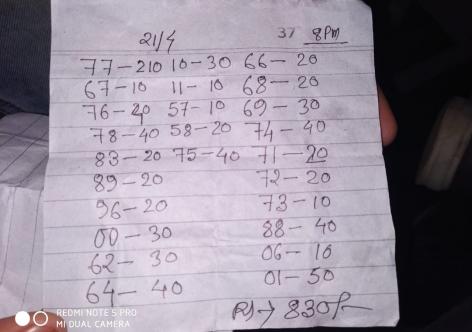 21/4 37 8PM
77-210 10-30 66-20
67-10 11-10 68-20
76-20 57-10 69-30
78-40 58-20 74-40
83-20 75-40 71-20
89-20 72-20
96-20 73-10
00-30 88-40
62-30 06-10
64-40 01-50
830/-
REDMI NOTE 5 PRO
MI DUAL CAMERA